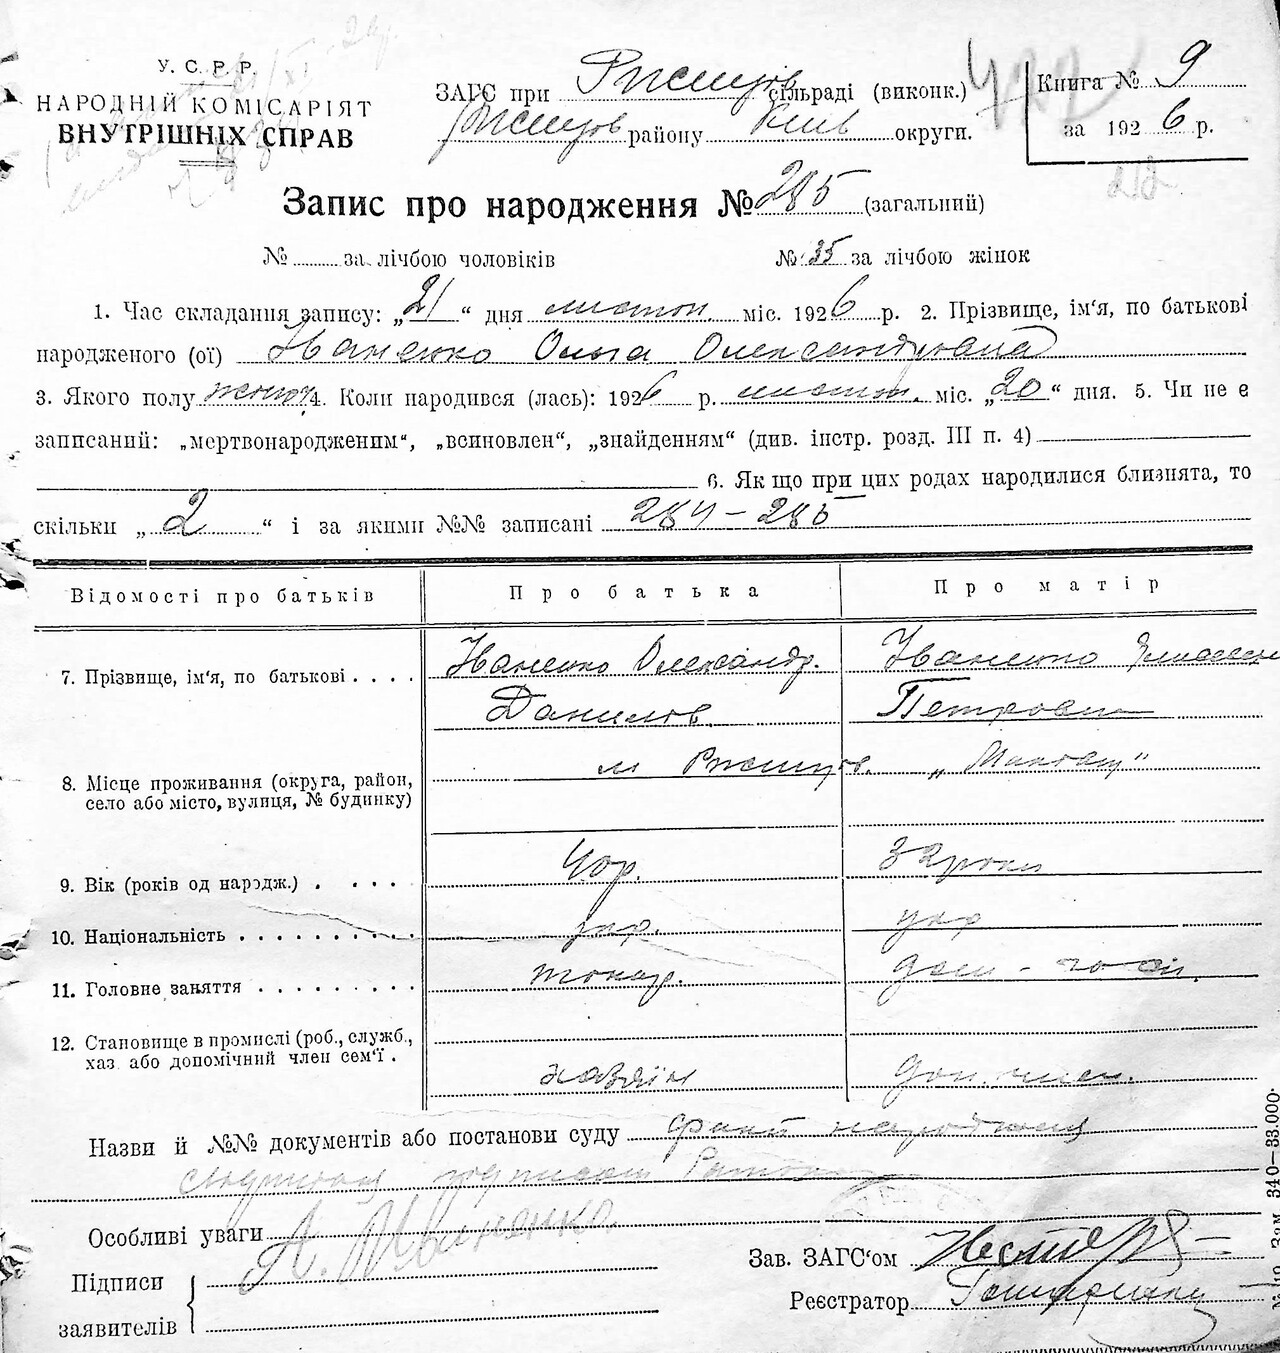 У. С. Р. Р.
НАРОДНІЙ КОМІСАРІЯТ
ВНУТРІШНІХ СПРАВ
ЗАГС при Ржищов сільраді (виконк.)
Ржищов району Київ округи.
Книга № 9
за 1926 р.
Запис про народження № 285 (загальний)
№ за лічбою чоловіків № 35 за лічбою жінок
1. Час складання запису: „21“ дня листоп. міс. 1926 р. 2. Прізвище, ім'я, по батькові
народженого (ої) Іваненко Ольга Олександровна
3. Якого полу жіноч. 4. Коли народився (лась): 1926 р. листоп. міс. „20“ дня. 5. Чи не є
записаний: „мертвонародженим“, „всиновлен“, „знайденням“ (див. інстр. розд. III п. 4)
6. Як що при цих родах народилися близнята, то
скільки „2“ і за якими №№ записані 284 – 285
Відомості про батьків Про батька Про матір
7. Прізвище, ім'я, по батькові Іваненко Олександр. Данилов. Іваненко Петровна
8. Місце проживання (округа, район,
село або місто, вулиця, № будинку) м Ржищов.
9. Вік (років од народж.) 40р. 32 роки
10. Національність укр. укр
11. Головне заняття токар. дом - госп.
12. Становище в промислі (роб., служб.,
хаз або допомічний член сем'ї. хазяїн доп. член.
Назви й №№ документів або постанови суду факт народження
Особливі уваги
А. Іваненко.
Підписи
заявителів
Зав. ЗАГС'ом
Реєстратор
Зам. 340—33.000.